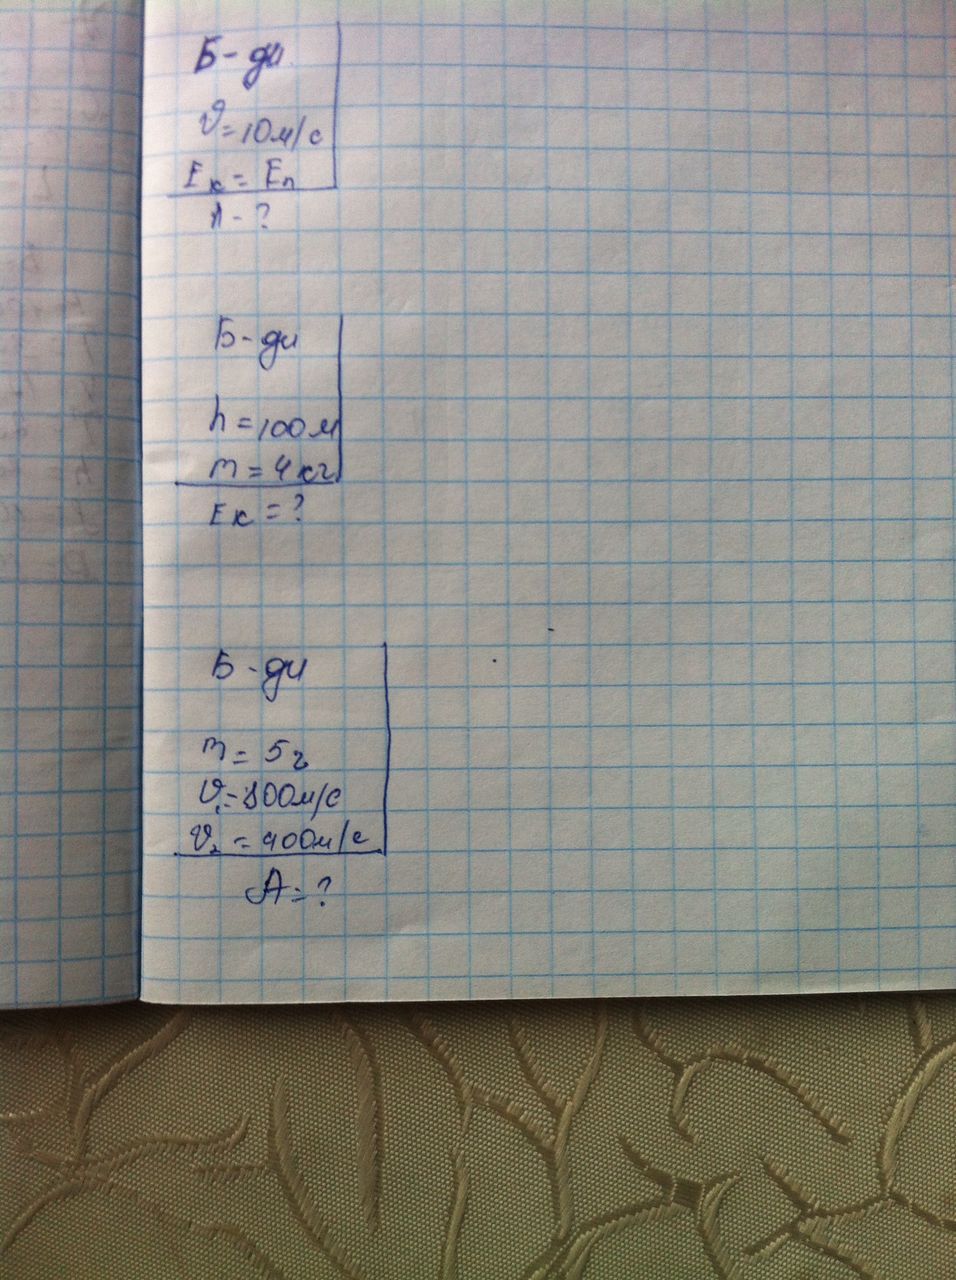 Б-ди
υ=10м/с
Eк = Eп
h-?
Б-ди
h=100м
m=4кг
Eк=?
Б-ди
m=5г
υ₁=800м/с
υ₂=400м/с
A=?